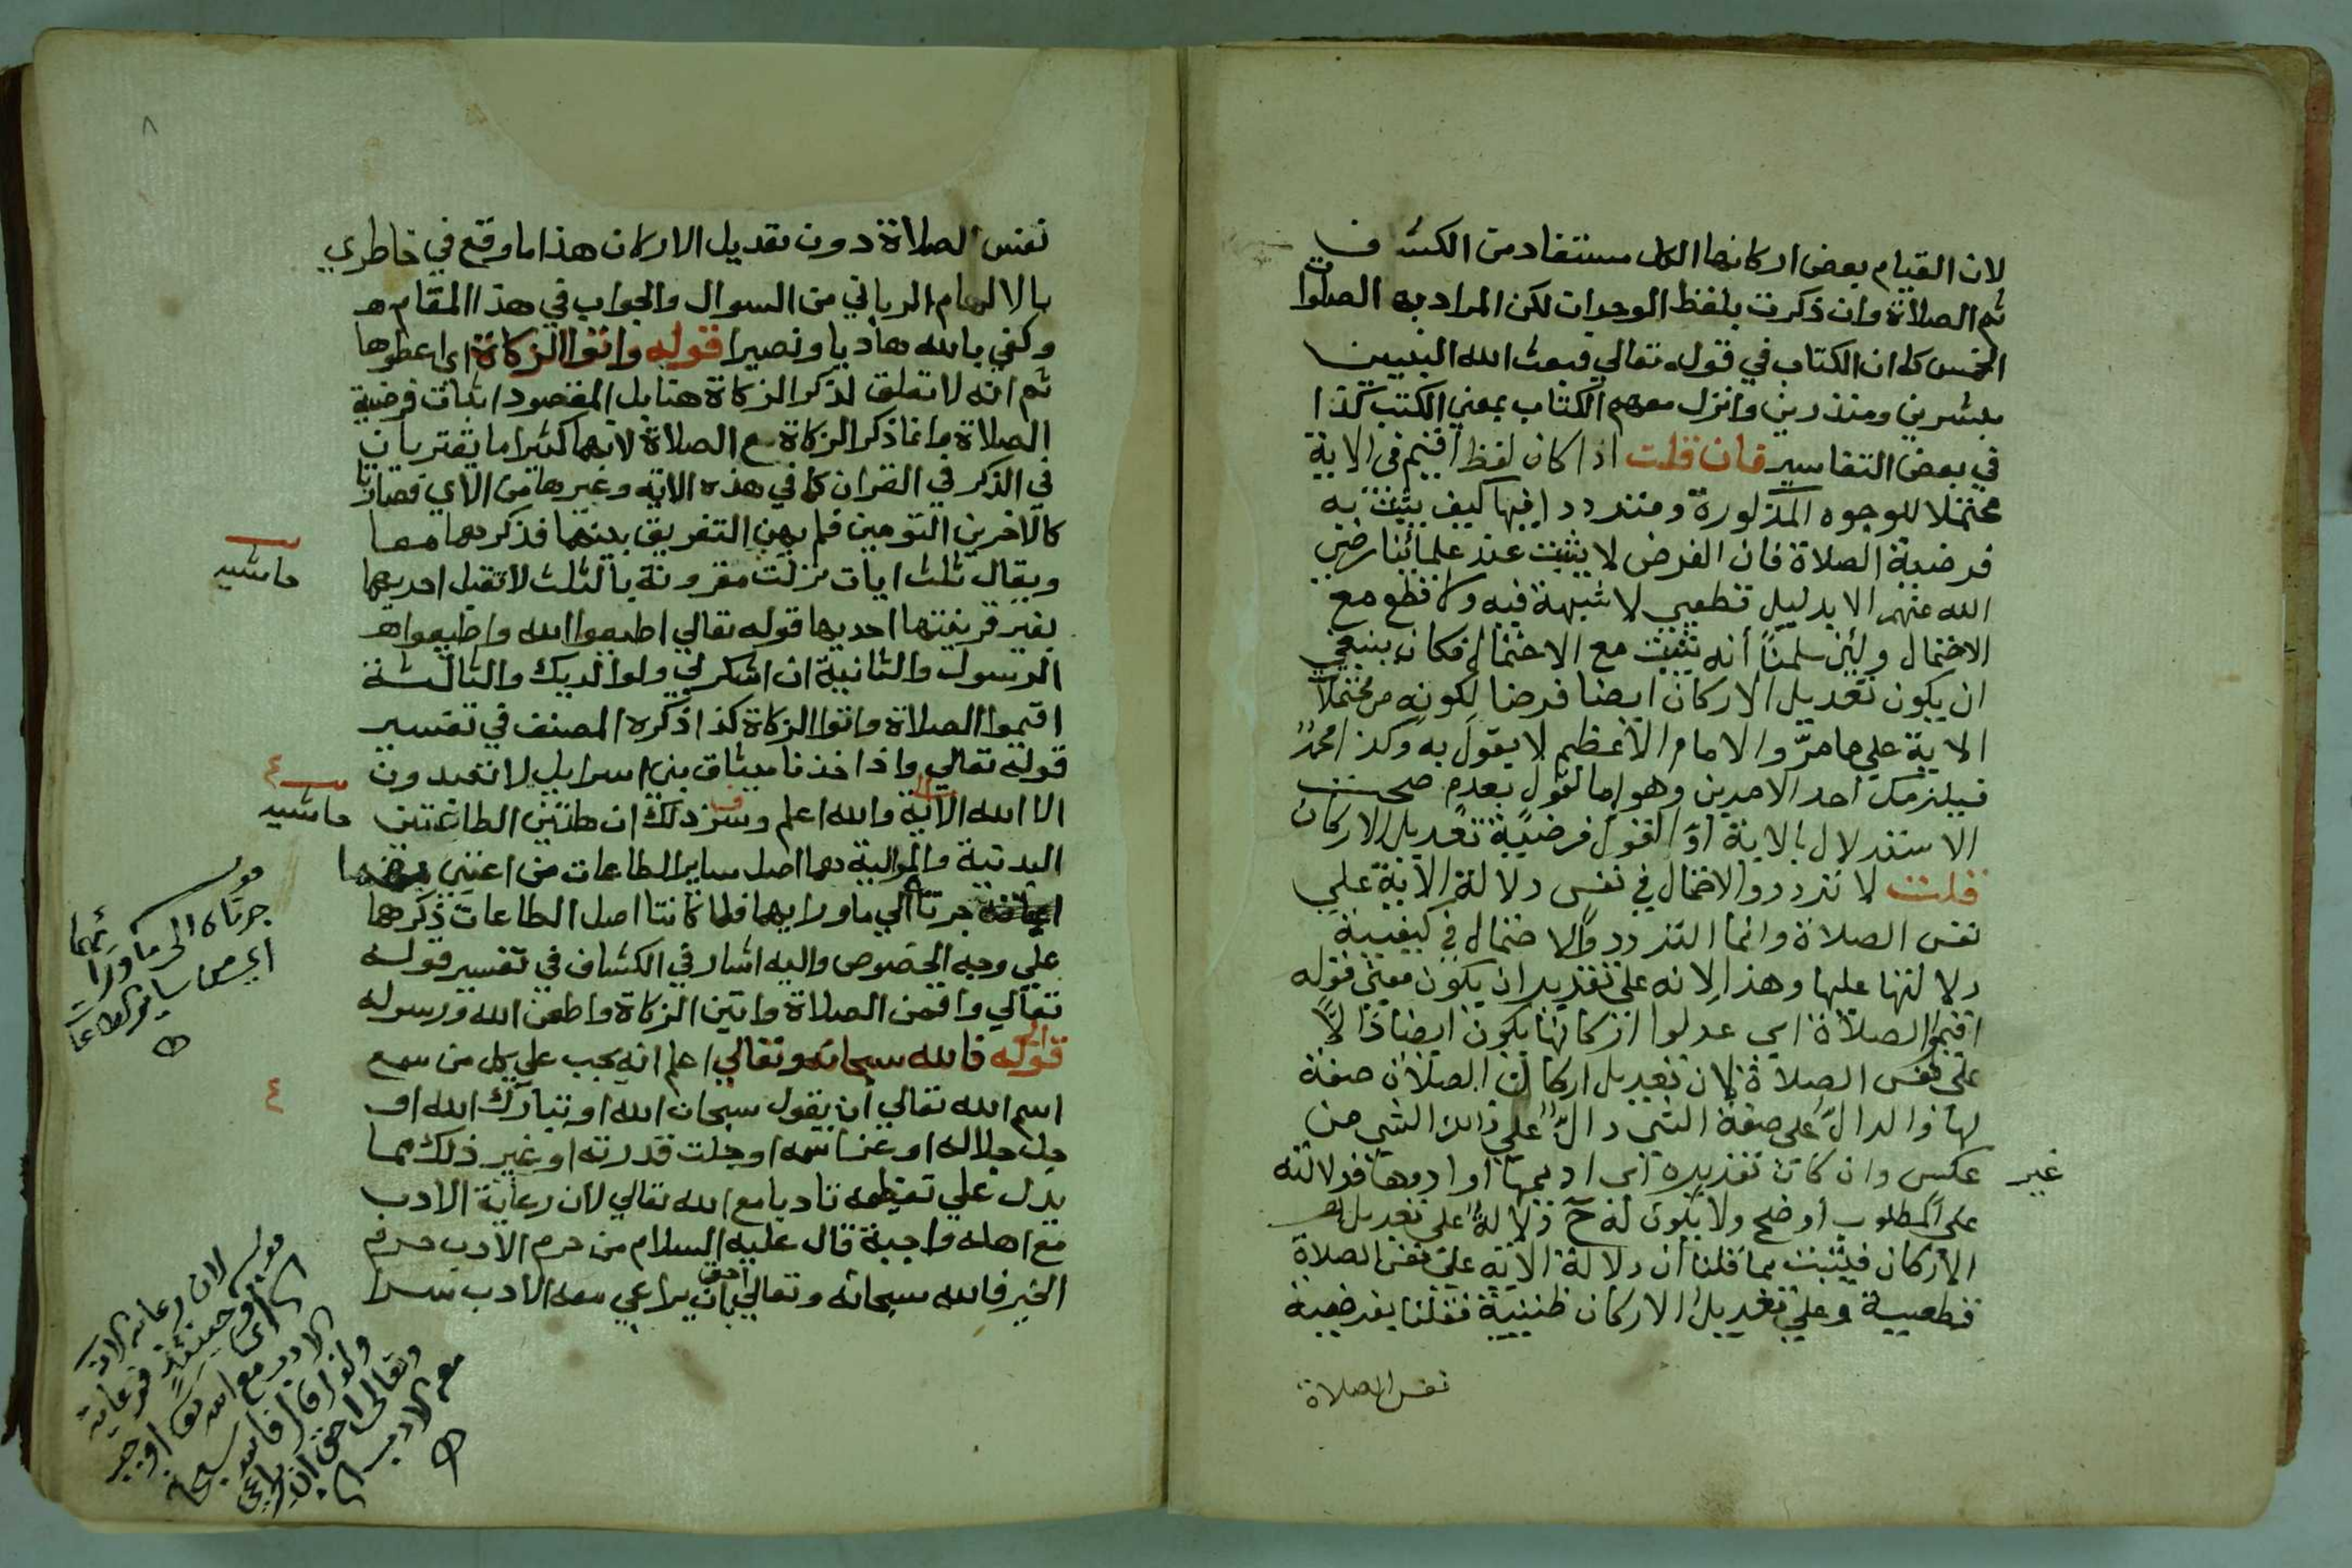 لان القيام بعض اركانها الكل مستفاد من الكشاف
ثم الصلاة وان ذكرت بلفظ الوحدان لكن المراد به الصلوات
الخمس كما ان الكتاب في قوله تعالي فبعث الله النبيين
مبشرين ومنذرين وانزل معهم الكتاب بمعني الكتب كذا
في بعض التفاسير فان قلت اذا كان لفظ اقيم في الاية
محتملا للوجوه المذكورة ومترددا فيها كيف يثبت به
فرضية الصلاة فان الفرض لا يثبت عند علمائنا رضي
الله عنهم الا بدليل قطعي لا شبهة فيه ولا قطع مع
الاحتمال ولئن سلمنا أنه يثبت مع الاحتمال فكان ينبغي
ان يكون تعديل الاركان ايضا فرضا لكونه من محتملات
الاية علي ما مرّ والامام الاعظم لا يقول به وكذا محمدٌ
فيلزمك احد الامرين وهو اما القول بعدم صحت
الاستدلال بالاية اوّ القول فرضية تعديل الاركان
قلت لا تردد والاحتمال في نفس دلالة الاية علي
نفس الصلاة وانما التردد والاحتمال في كيفية
دلالتها عليها وهذا لانه علي تقدير ان يكون معني قوله
اقيموا الصلاة اي عدلوا اركانها يكون ايضا دالا
علي نفس الصلاة لان تعديل اركان الصلاة صفة
لها والدالّ علي صفة الشي دالّ علي ذلك الشي من
غير عكس وان كان تقديره اي اديموها او ادوها فدلالته
علي المطلوب أوضح ولا يكون له ح دلالةٌ علي تعديل
الاركان فيثبت بما قلنا أن دلالة الاية علي نفس الصلاة
قطعية وعلي تعديل الاركان ظنية فقلنا بفرضية
نفس الصلاة
نفس الصلاة دون تعديل الاركان هذا ما وقع في خاطري
بالالهام الرباني من السوال والجواب في هذا المقام
وكفي بالله هاديا ونصيرا قوله واتوا الزكاة اي اعطوها
ثم انه لا تعلق لذكر الزكاة هنا بل المقصود اثبات فرضية
الصلاة وانما ذكر الزكاة مع الصلاة لانهما كثيرا ما يقتربان
في الذكر في القران كما في هذه الاية وغيرها من الآي فصارتا
كالاخرين التومين فلم يهن التفريق بينهما فذكرهما معا
ويقال ثلث ايات نزلت مقرونة بالثلث لا تقبل احديهما
بغير قرينتها احديها قوله تعالي اطيعوا الله واطيعوا
الرسول والثانية ان اشكر لي ولوالديك والثالثة
اقيموا الصلاة واتوا الزكاة كذا ذكره المصنف في تفسير
قوله تعالي واذ اخذنا ميثاق بني اسرايل لا تعبدون
الا الله الاية والله اعلم وسر ذلك ان هاتين الطاعتين
البدنية والمالية هما اصل ساير الطاعات من اعتني بهما
جرتا الي ما ورايهما فلما كانتا اصل الطاعات ذكرهما
علي وجه الخصوص واليه اشار في الكشاف في تفسير قوله
تعالي واقمن الصلاة واتين الزكاة واطعن الله ورسوله
قوله فالله سبحانه وتعالي اعلم انه يجب علي كل من سمع
اسم الله تعالي ان يقول سبحان الله او تبارك الله او
جل جلاله او عز اسمه او جلت قدرته او غير ذلك مما
يدل علي تعظيمه تادبا مع الله تعالي لان رعاية الادب
مع اهله واجبة قال عليه السلام من حرم الادب حرم
الخير فالله سبحانه وتعالي احق بان يراعي معه الادب
حاشيه
حاشيه
قوله
جرتاه الي ما ورائهما
اي من سائر الطاعات
قوله لان رعاية الادب